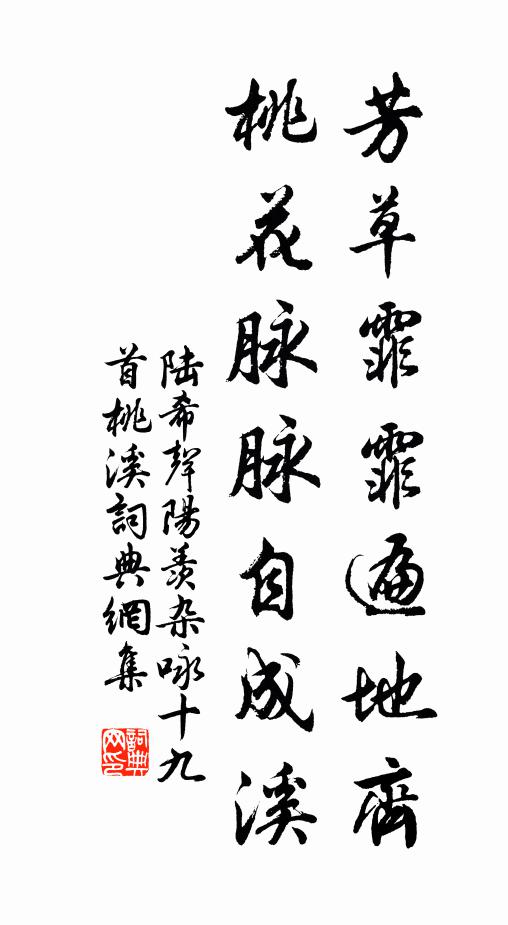 芳草霏霏遍地齊
桃花脉脉自成溪
陸希聲陽羨杂咏十九
首桃溪詞典網集
詞典网印